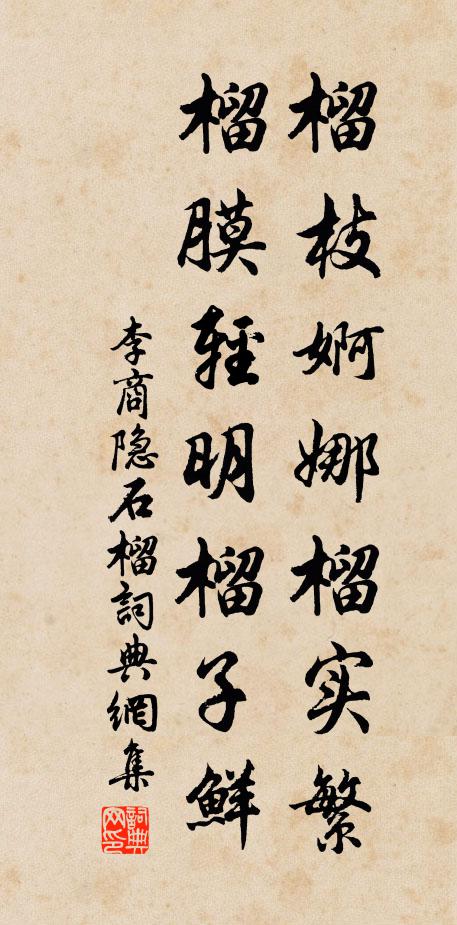 榴枝婀娜榴实繁
榴膜輕明榴子鮮
李商隐石榴詞典網集
詞典網印